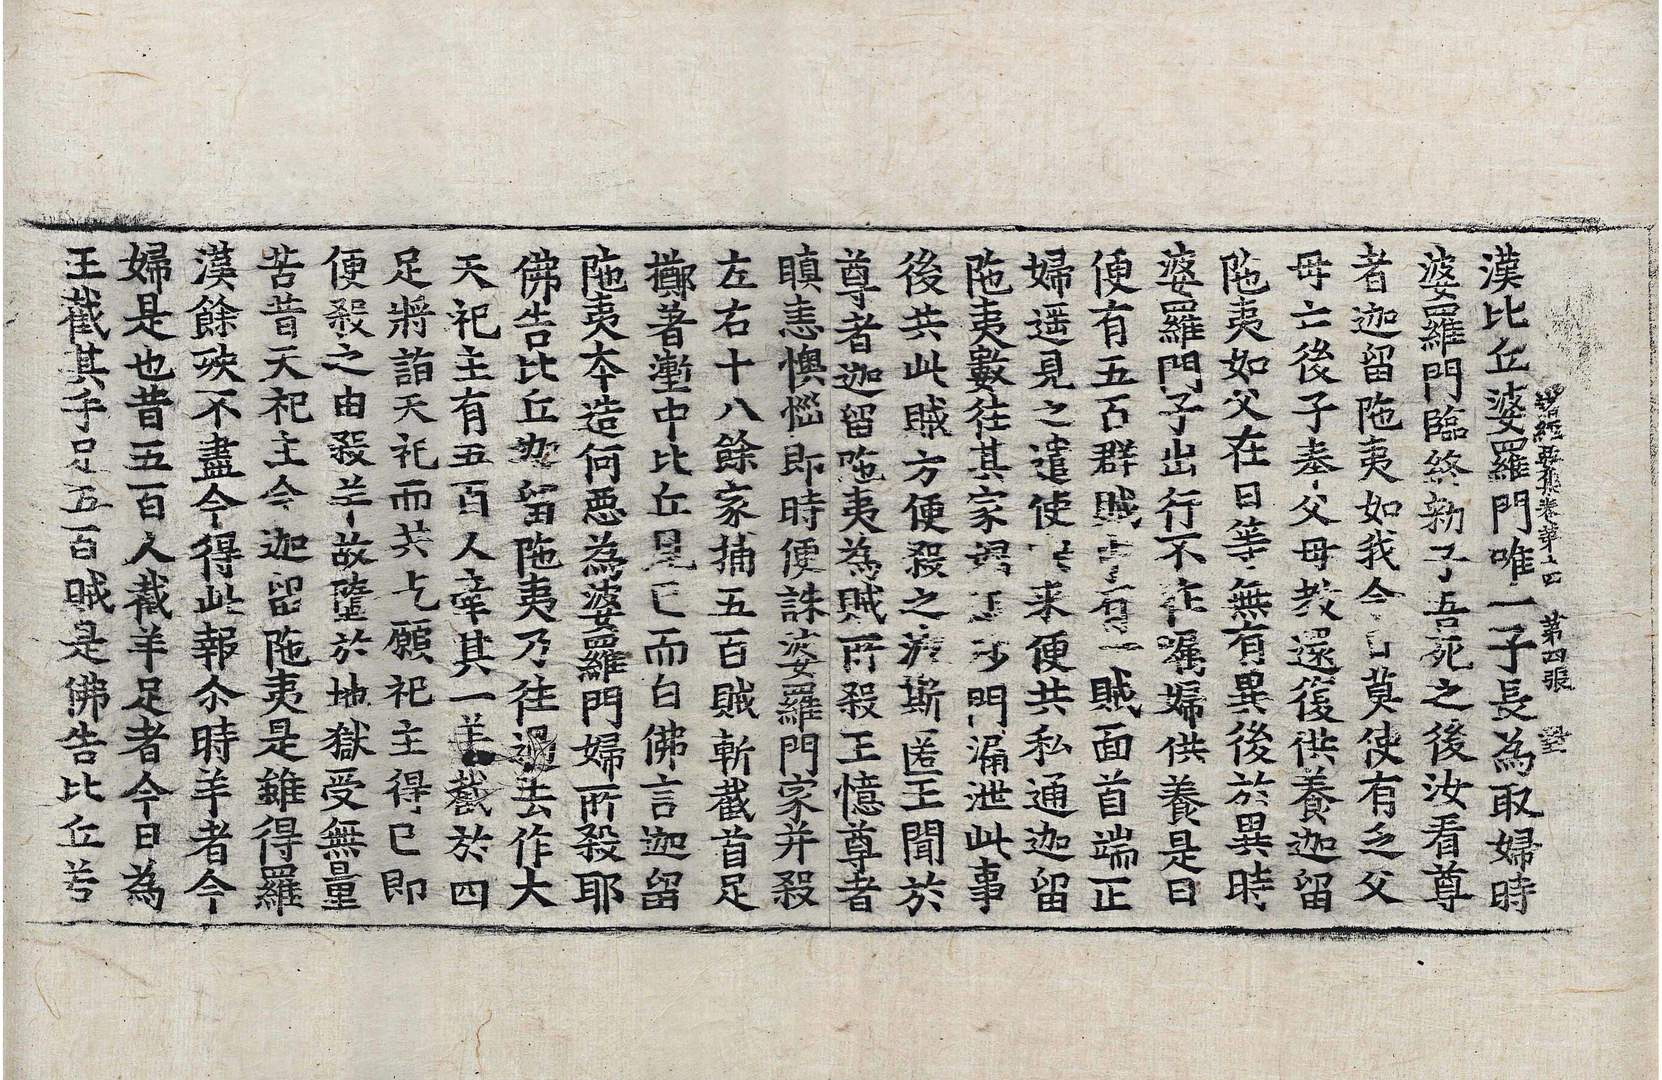 諸經要集卷第十四 第四張 對
漢比丘婆羅門唯一子長為取婦時
婆羅門臨終勑子吾死之後汝看尊
者迦留陁夷如我今日莫使有乏父
母亡後子奉父母教還復供養迦留
陁夷如父在日等無有異後於異時
婆羅門子出行不在囑婦供養是日
便有五百群賊一賊面首端正
婦遥見之遣使来便共私通迦留
陁夷數往其家沙門漏泄此事
後共此賊方便殺之波斯匿王聞於
尊者迦留陁夷為賊所殺王憶尊者
瞋恚懊惱即時便誅婆羅門家并殺
左右十八餘家捕五百賊斬截首足
擲著壍中比丘見已而白佛言迦留
陁夷夲造何惡為婆羅門婦所殺耶
佛告比丘迦留陁夷乃往過去作大
天祀主有五百人牽其一羊截於四
足將詣天祀而共乞願祀主得已即
便殺之由殺羊故墮於地獄受無量
苦昔天祀主今迦留陁夷是雖得羅
漢餘殃不盡今得此報尒時羊者今
婦是也昔五百人截羊足者今日為
王截其手足五百賊是佛告比丘若